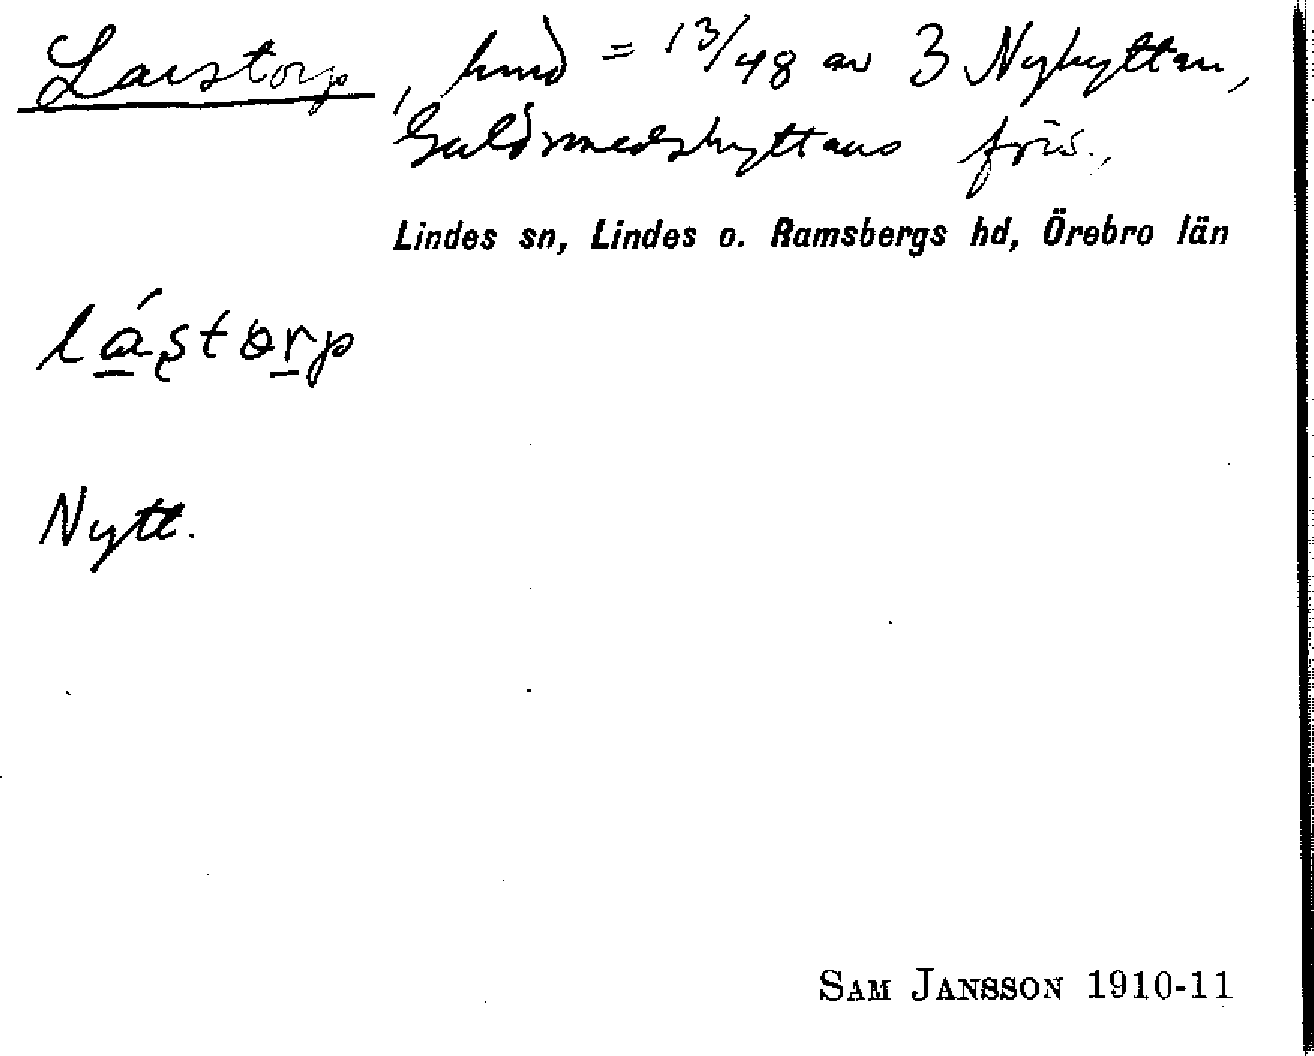 Larstorp, hmd = 13/48 av 3 Nyhyttan,
Guldsmedshyttans förs.,
Lindes sn, Lindes o. Ramsbergs hd, Örebro län
lástorp
Nytt.
SAM JANSSON 1910-11